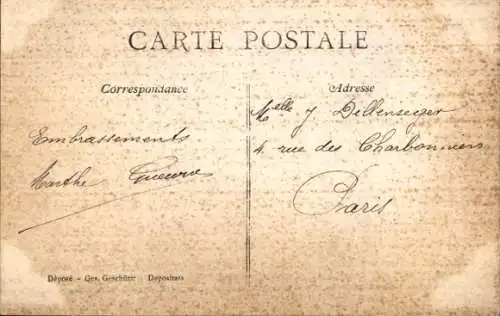 CARTE POSTALE
Correspondance
Adresse
Melle J Dillenseger
4, rue des Charbonniers
Paris
Embrassements
Marthe
Déposé - Ges. Geschützt - Depositato